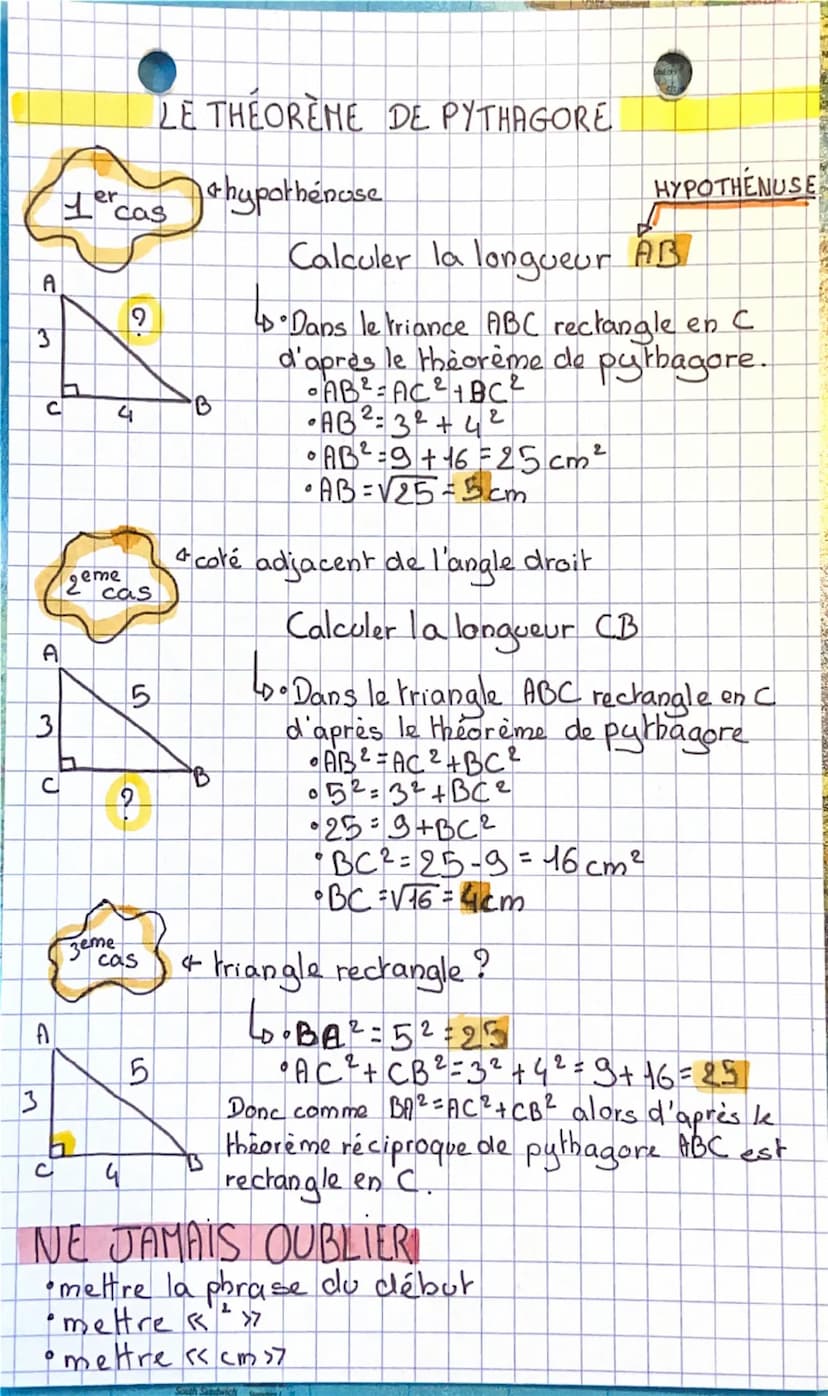 LE THÉORÈME DE PYTHAGORE
1er cas
hypothénuse
HYPOTHÉNUSE
Calculer la longueur AB
A
?
3
C
4
B
•Dans le triance ABC rectangle en C
d'après le théorème de pythagore.
•AB²=AC²+BC²
•AB²=3²+4²
•AB²=9+16=25cm²
•AB=√25=5cm
2eme cas
coté adjacent de l'angle droit
Calculer la longueur CB
A
5
3
C
B
?
•Dans le triangle ABC rectangle en C
d'après le théorème de pythagore
•AB²=AC²+BC²
•5²=3²+BC²
•25=9+BC²
•BC²=25-9=16cm²
•BC=√16=4cm
3eme cas
triangle rectangle?
A
5
3
C
4
B
•BA²=5²=25
•AC²+CB²=3²+4²=9+16=25
Donc comme BA²=AC²+CB² alors d'après le
théorème réciproque de pythagore ABC est
rectangle en C.
NE JAMAIS OUBLIER
•mettre la phrase du début
•mettre « ² »
•mettre « cm »
South Sandwich